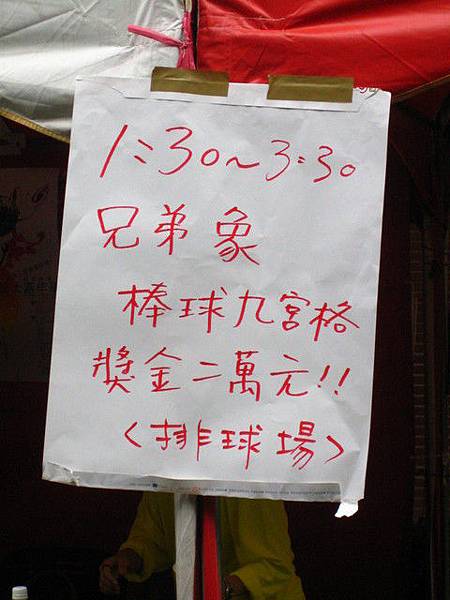 1:30~3:30
兄弟象
棒球九宮格
獎金二萬元!!
<排球場>